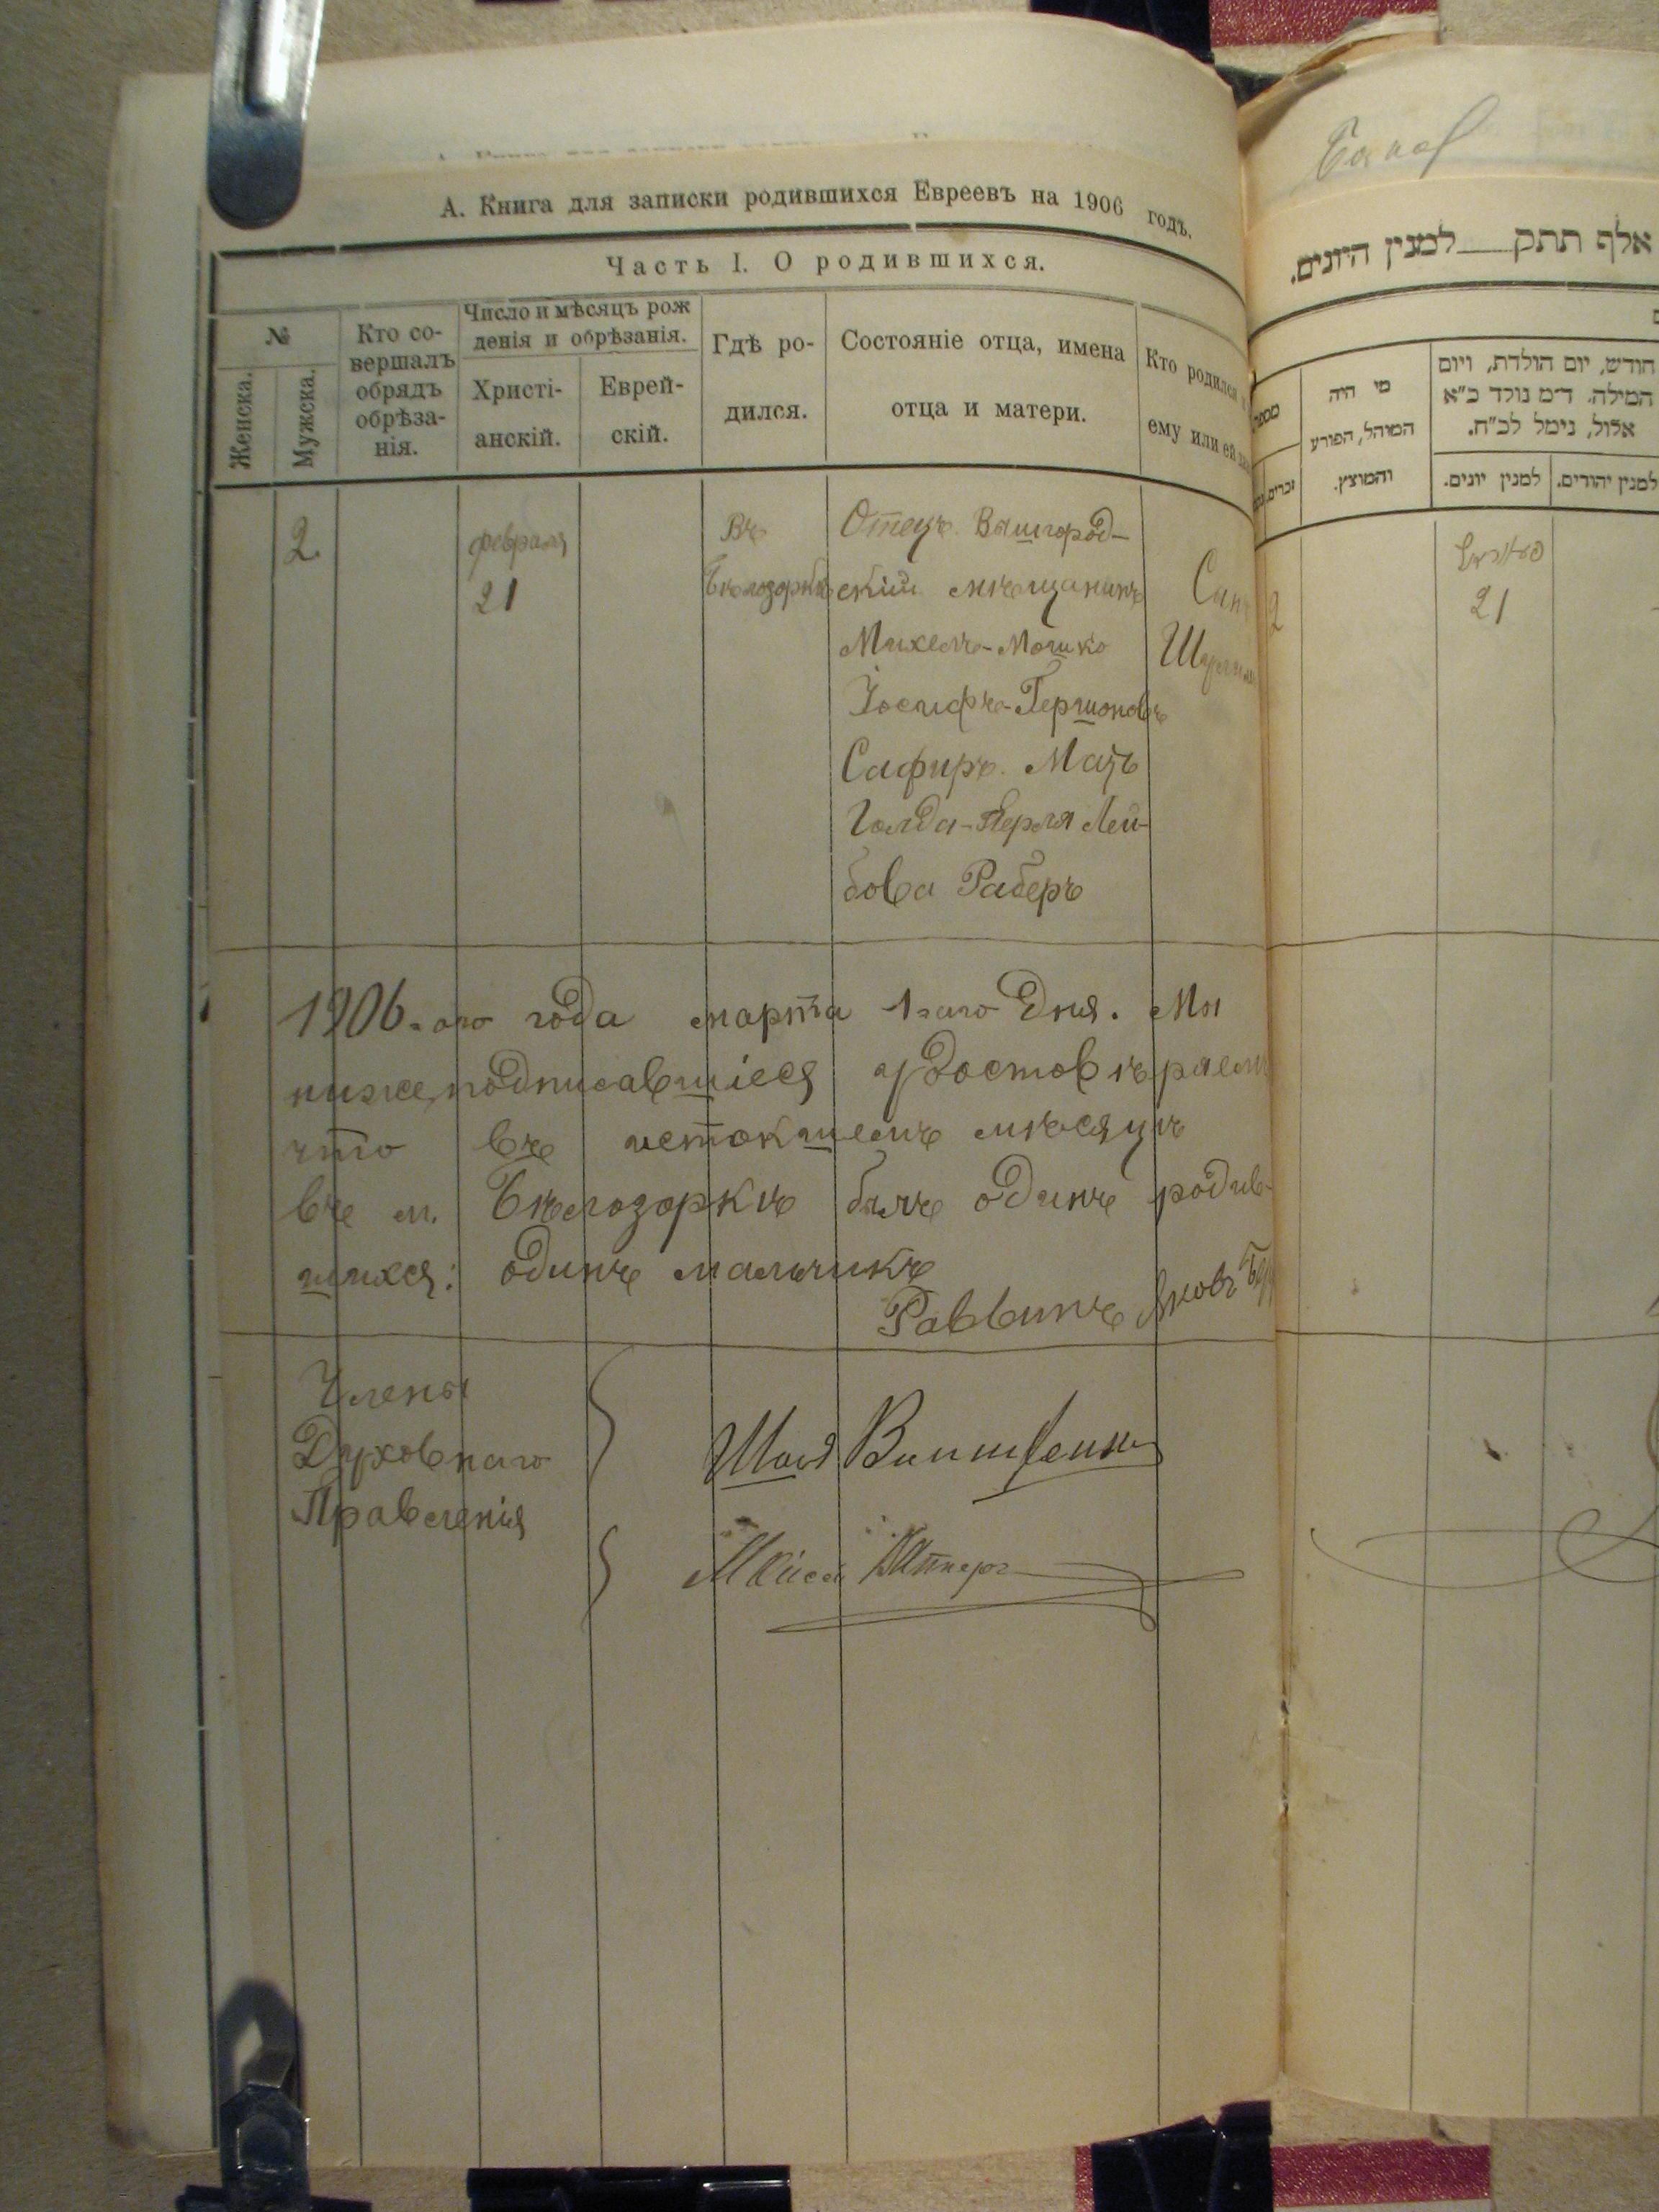 А. Книга для записки родившихся Евреевъ на 1906 годъ.
Часть I. О родившихся.
№
Женска.
Мужска.
Кто со-
вершалъ
обрядъ
обрѣза-
нія.
Число и мѣсяцъ рож
денія и обрѣзанія.
Христі-
анскій.
Еврей-
скій.
Гдѣ ро-
дился.
Состояніе отца, имена
отца и матери.
Кто родился
ему или ей
2
февраля
21
Въ
Бѣлозоркѣ
Отецъ Вышгород-
скій мѣщанинъ
Михель-Мошко
Іосифъ-Гершоновъ
Сафиръ. Мать
Голда-Перля Лей-
бова Раберъ
Сынъ
1906-ого года марта 1-аго дня. Мы
нижеподписавшіеся удостовѣряемъ
что въ истокшемъ мѣсяцѣ
въ м. Бѣлозоркѣ былъ одинъ родив-
шихся: одинъ мальчикъ
Раввинъ Яковъ
Члены
Духовнаго
Правленія
Шая
אלף תתק למנין היונים.
מי היה
המוהל, הפורע
והמוצץ.
חודש, יום הולדת, ויום
המילה. ד״מ נולד כ״א
אלול, נימל לכ״ח.
למנין יונים.
למנין יהודים.
2
21